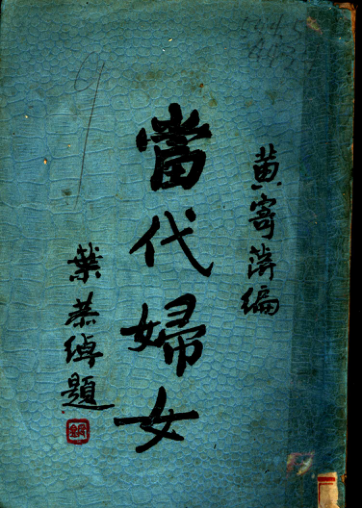 黄寄萍編
當代婦女
葉恭綽題